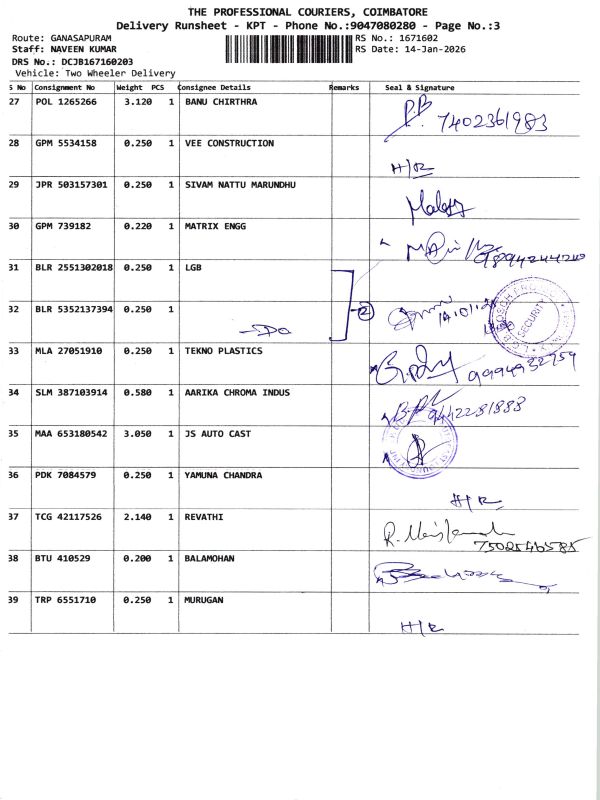 THE PROFESSIONAL COURIERS, COIMBATORE
Delivery Runsheet - KPT - Phone No.:9047080280 - Page No.:3
Route: GANASAPURAM RS No.: 1671602
Staff: NAVEEN KUMAR RS Date: 14-Jan-2026
DRS No.: DCJB167160203
Vehicle: Two Wheeler Delivery
S No Consignment No Weight PCS Consignee Details Remarks Seal & Signature
27 POL 1265266 3.120 1 BANU CHIRTHRA
7402361983
28 GPM 5534158 0.250 1 VEE CONSTRUCTION
H/R
29 JPR 503157301 0.250 1 SIVAM NATTU MARUNDHU
30 GPM 739182 0.220 1 MATRIX ENGG
31 BLR 2551302018 0.250 1 LGB
32 BLR 5352137394 0.250 1
2
SECURITY
33 MLA 27051910 0.250 1 TEKNO PLASTICS
9994932759
34 SLM 387103914 0.580 1 AARIKA CHROMA INDUS
9442281888
35 MAA 653180542 3.050 1 JS AUTO CAST
36 PDK 7084579 0.250 1 YAMUNA CHANDRA
H/R
37 TCG 42117526 2.140 1 REVATHI
7502546585
38 BTU 410529 0.200 1 BALAMOHAN
39 TRP 6551710 0.250 1 MURUGAN
H/R